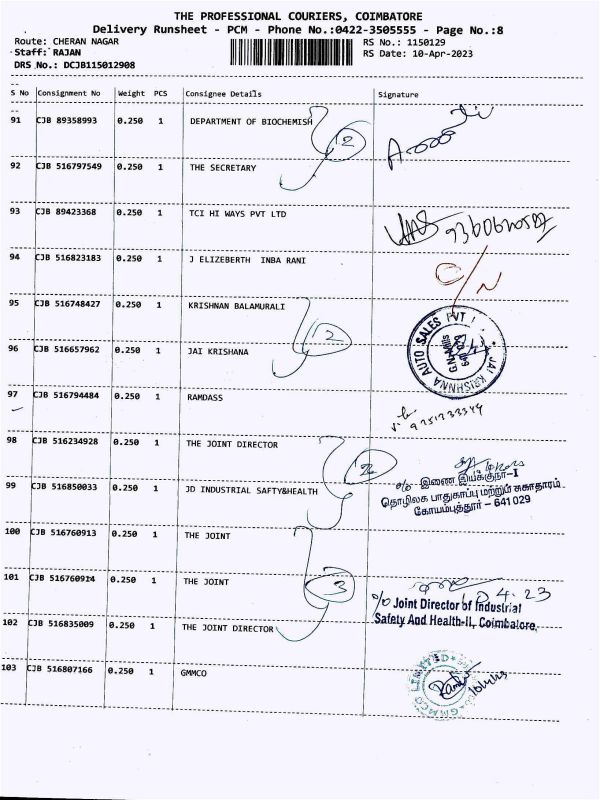 THE PROFESSIONAL COURIERS, COIMBATORE
Delivery Runsheet - PCM - Phone No.:0422-3505555 - Page No.:8
Route: CHERAN NAGAR RS No.: 1150129
Staff: RAJAN RS Date: 10-Apr-2023
DRS No.: DCJB115012908
S No Consignment No Weight PCS Consignee Details Signature
91 CJB 89358993 0.250 1 DEPARTMENT OF BIOCHEMISH
2
92 CJB 516797549 0.250 1 THE SECRETARY
93 CJB 89423368 0.250 1 TCI HI WAYS PVT LTD
94 CJB 516823183 0.250 1 J ELIZEBERTH INBA RANI
O/N
95 CJB 516748427 0.250 1 KRISHNAN BALAMURALI
2
JAI KRISHNNA AUTO SALES PVT
96 CJB 516657962 0.250 1 JAI KRISHANA
97 CJB 516794484 0.250 1 RAMDASS
98 CJB 516234928 0.250 1 THE JOINT DIRECTOR
2
99 CJB 516850033 0.250 1 JD INDUSTRIAL SAFTY&HEALTH
o/o இணை இயக்குநர்-I
தொழிலக பாதுகாப்பு மற்றும் சுகாதாரம்
கோயம்புத்தூர் – 641 029
100 CJB 516760913 0.250 1 THE JOINT
101 CJB 516760914 0.250 1 THE JOINT
3
4.23
o/o Joint Director of Industrial
Safety And Health-II, Coimbatore.
102 CJB 516835009 0.250 1 THE JOINT DIRECTOR
103 CJB 516807166 0.250 1 GMMCO
GMMCO LIMITED